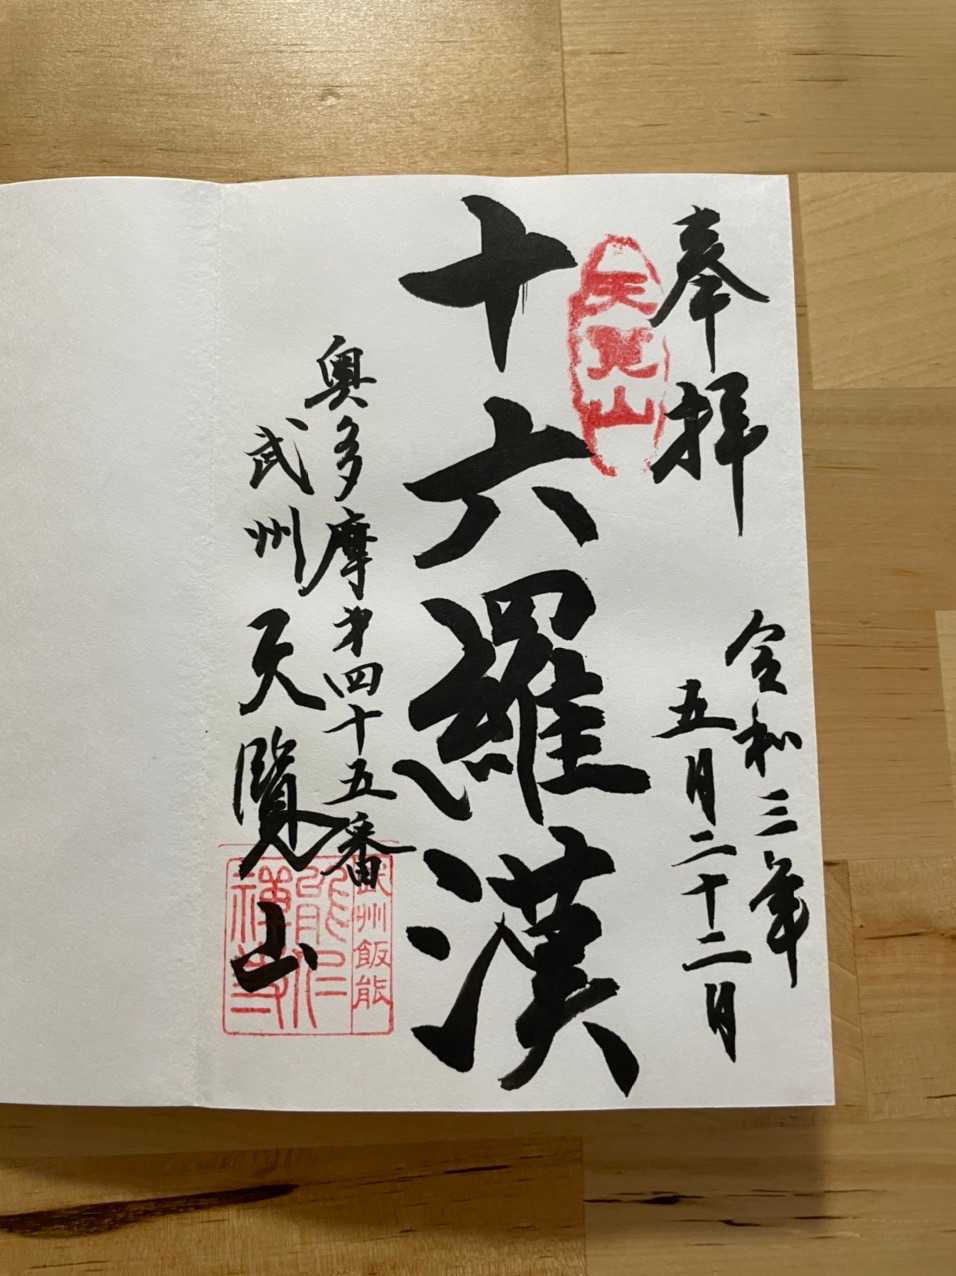 奉拝
令和三年
五月二十二日
天覧山
十六羅漢
奥多摩第四十五番
武州天覧山
武州飯能
能仁
禅寺